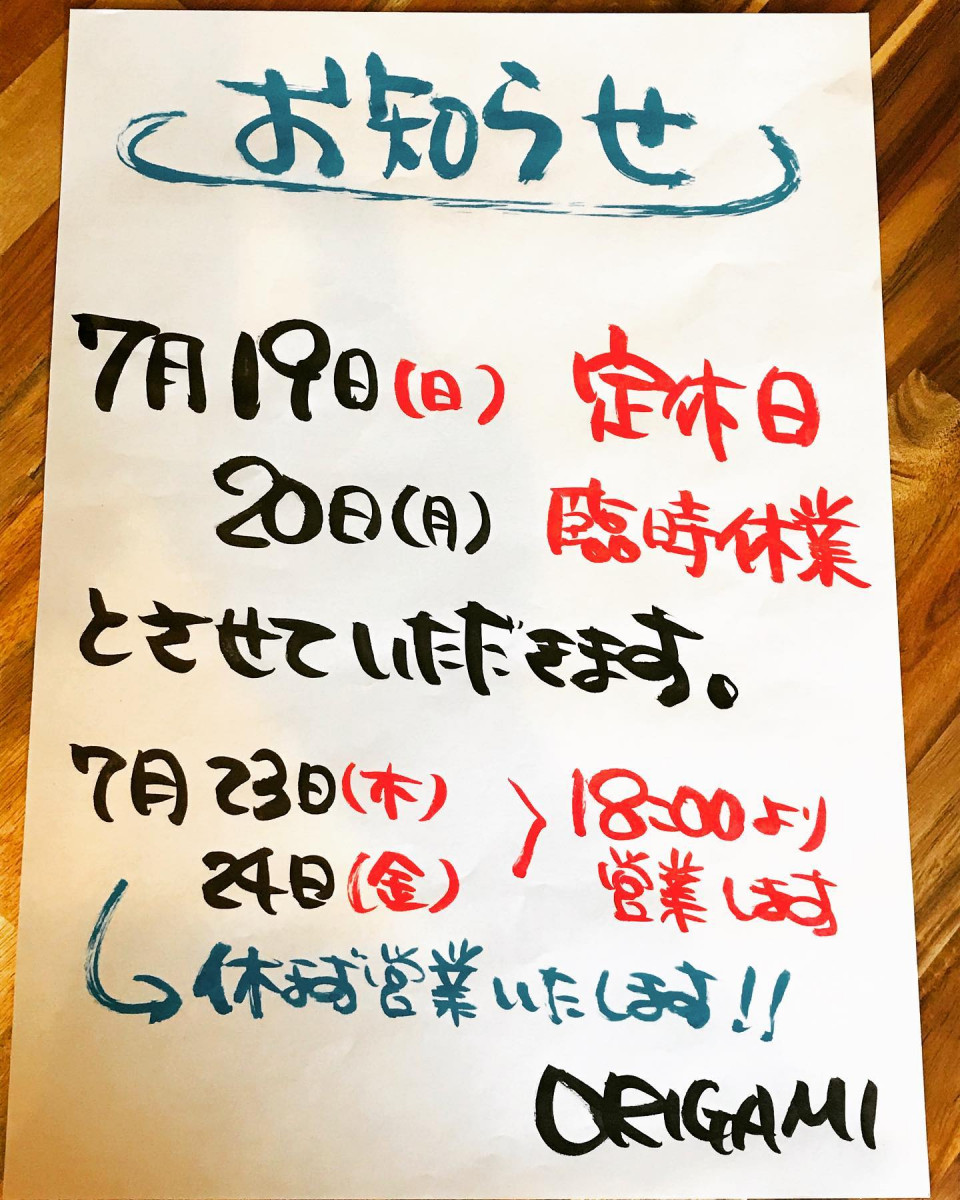 お知らせ
7月19日(日) 定休日
20日(月) 臨時休業
とさせていただきます。
7月23日(木)
24日(金)
18:00より
営業します
休まず営業いたします!!
ORIGAMI